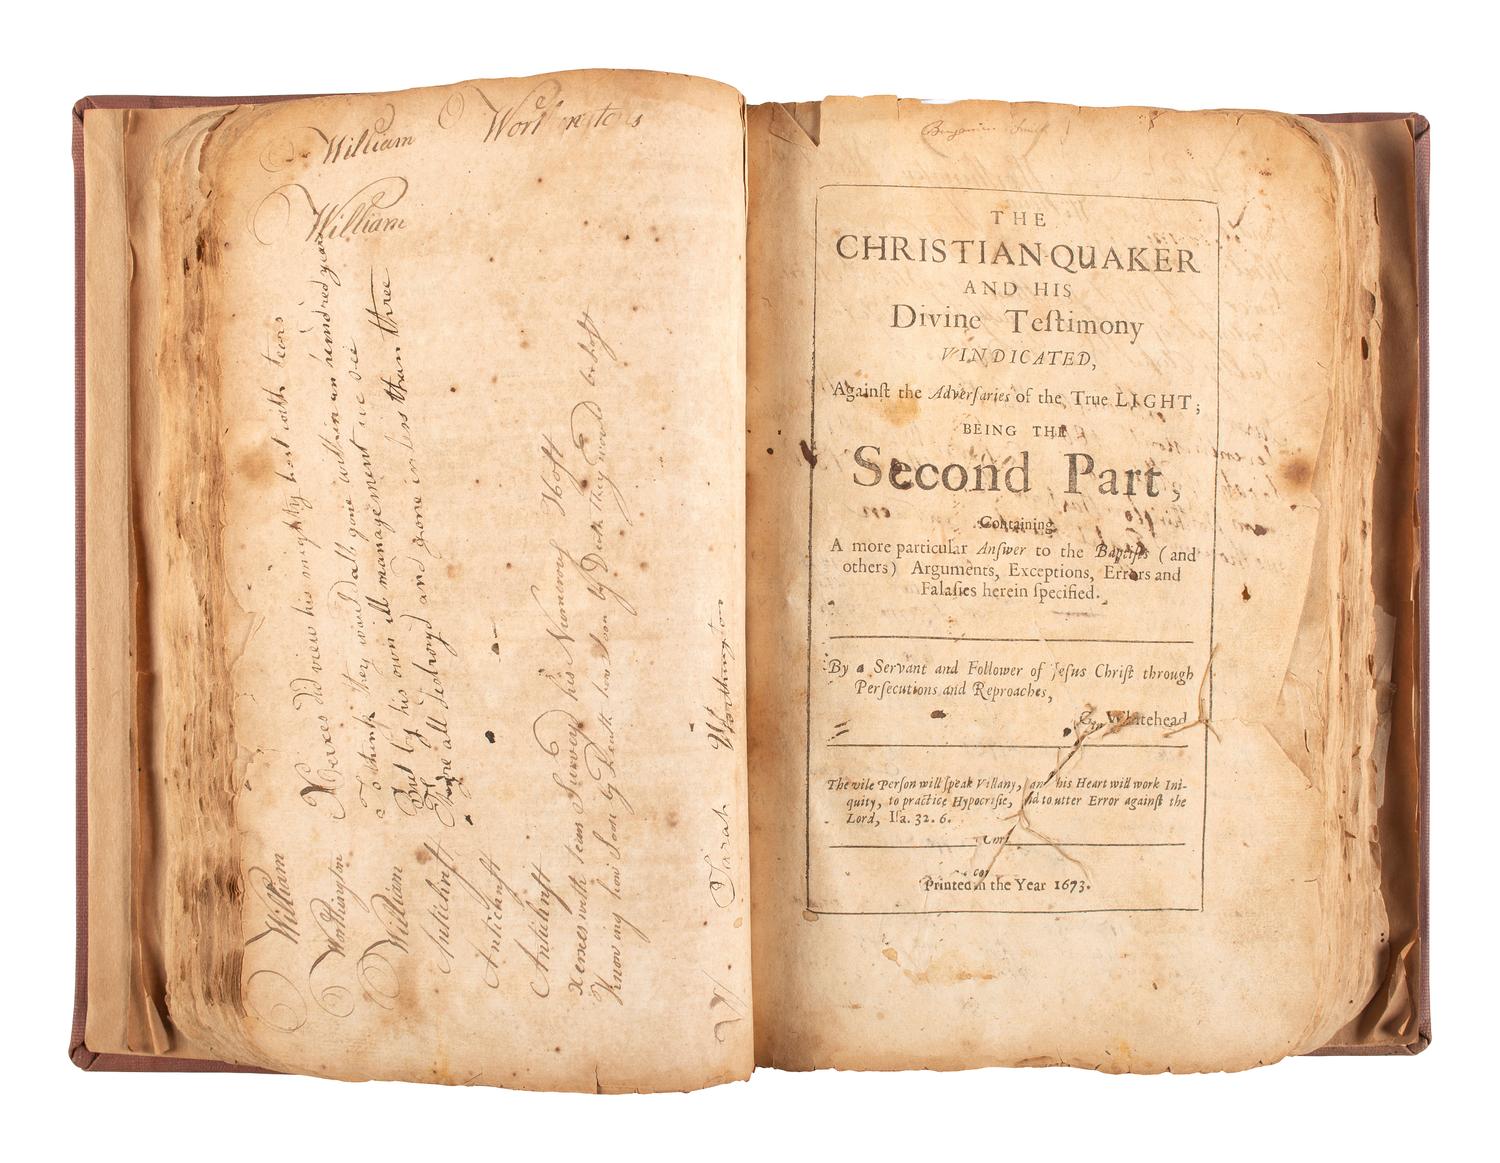 William Worthingtons
William
Xerxes did view his mighty host with tears
To think they would all gone within an hundred year
But by his own ill management we see
They're all destroyd and gone in less than three
William
Worthington
William
Antichrist
Antichrist
Antichrist
Xerxes with tears Survey'd his Numerous Host
Knowing how Soon by Death they would be lost
W
Sarah Worthington
Benjamin Smith
THE
CHRISTIAN-QUAKER
AND HIS
Divine Teſtimony
VINDICATED,
Againſt the Adverſaries of the True LIGHT;
BEING THE
Second Part,
Containing
A more particular Anſwer to the Baptiſts (and
others) Arguments, Exceptions, Errors and
Falaſies herein ſpecified.
By a Servant and Follower of Jeſus Chriſt through
Perſecutions and Reproaches,
Whitehead
The vile Perſon will ſpeak Villany, and his Heart will work Ini-
quity, to practice Hypocriſie, and to utter Error againſt the
Lord, Iſa. 32. 6.
Printed in the Year 1673.